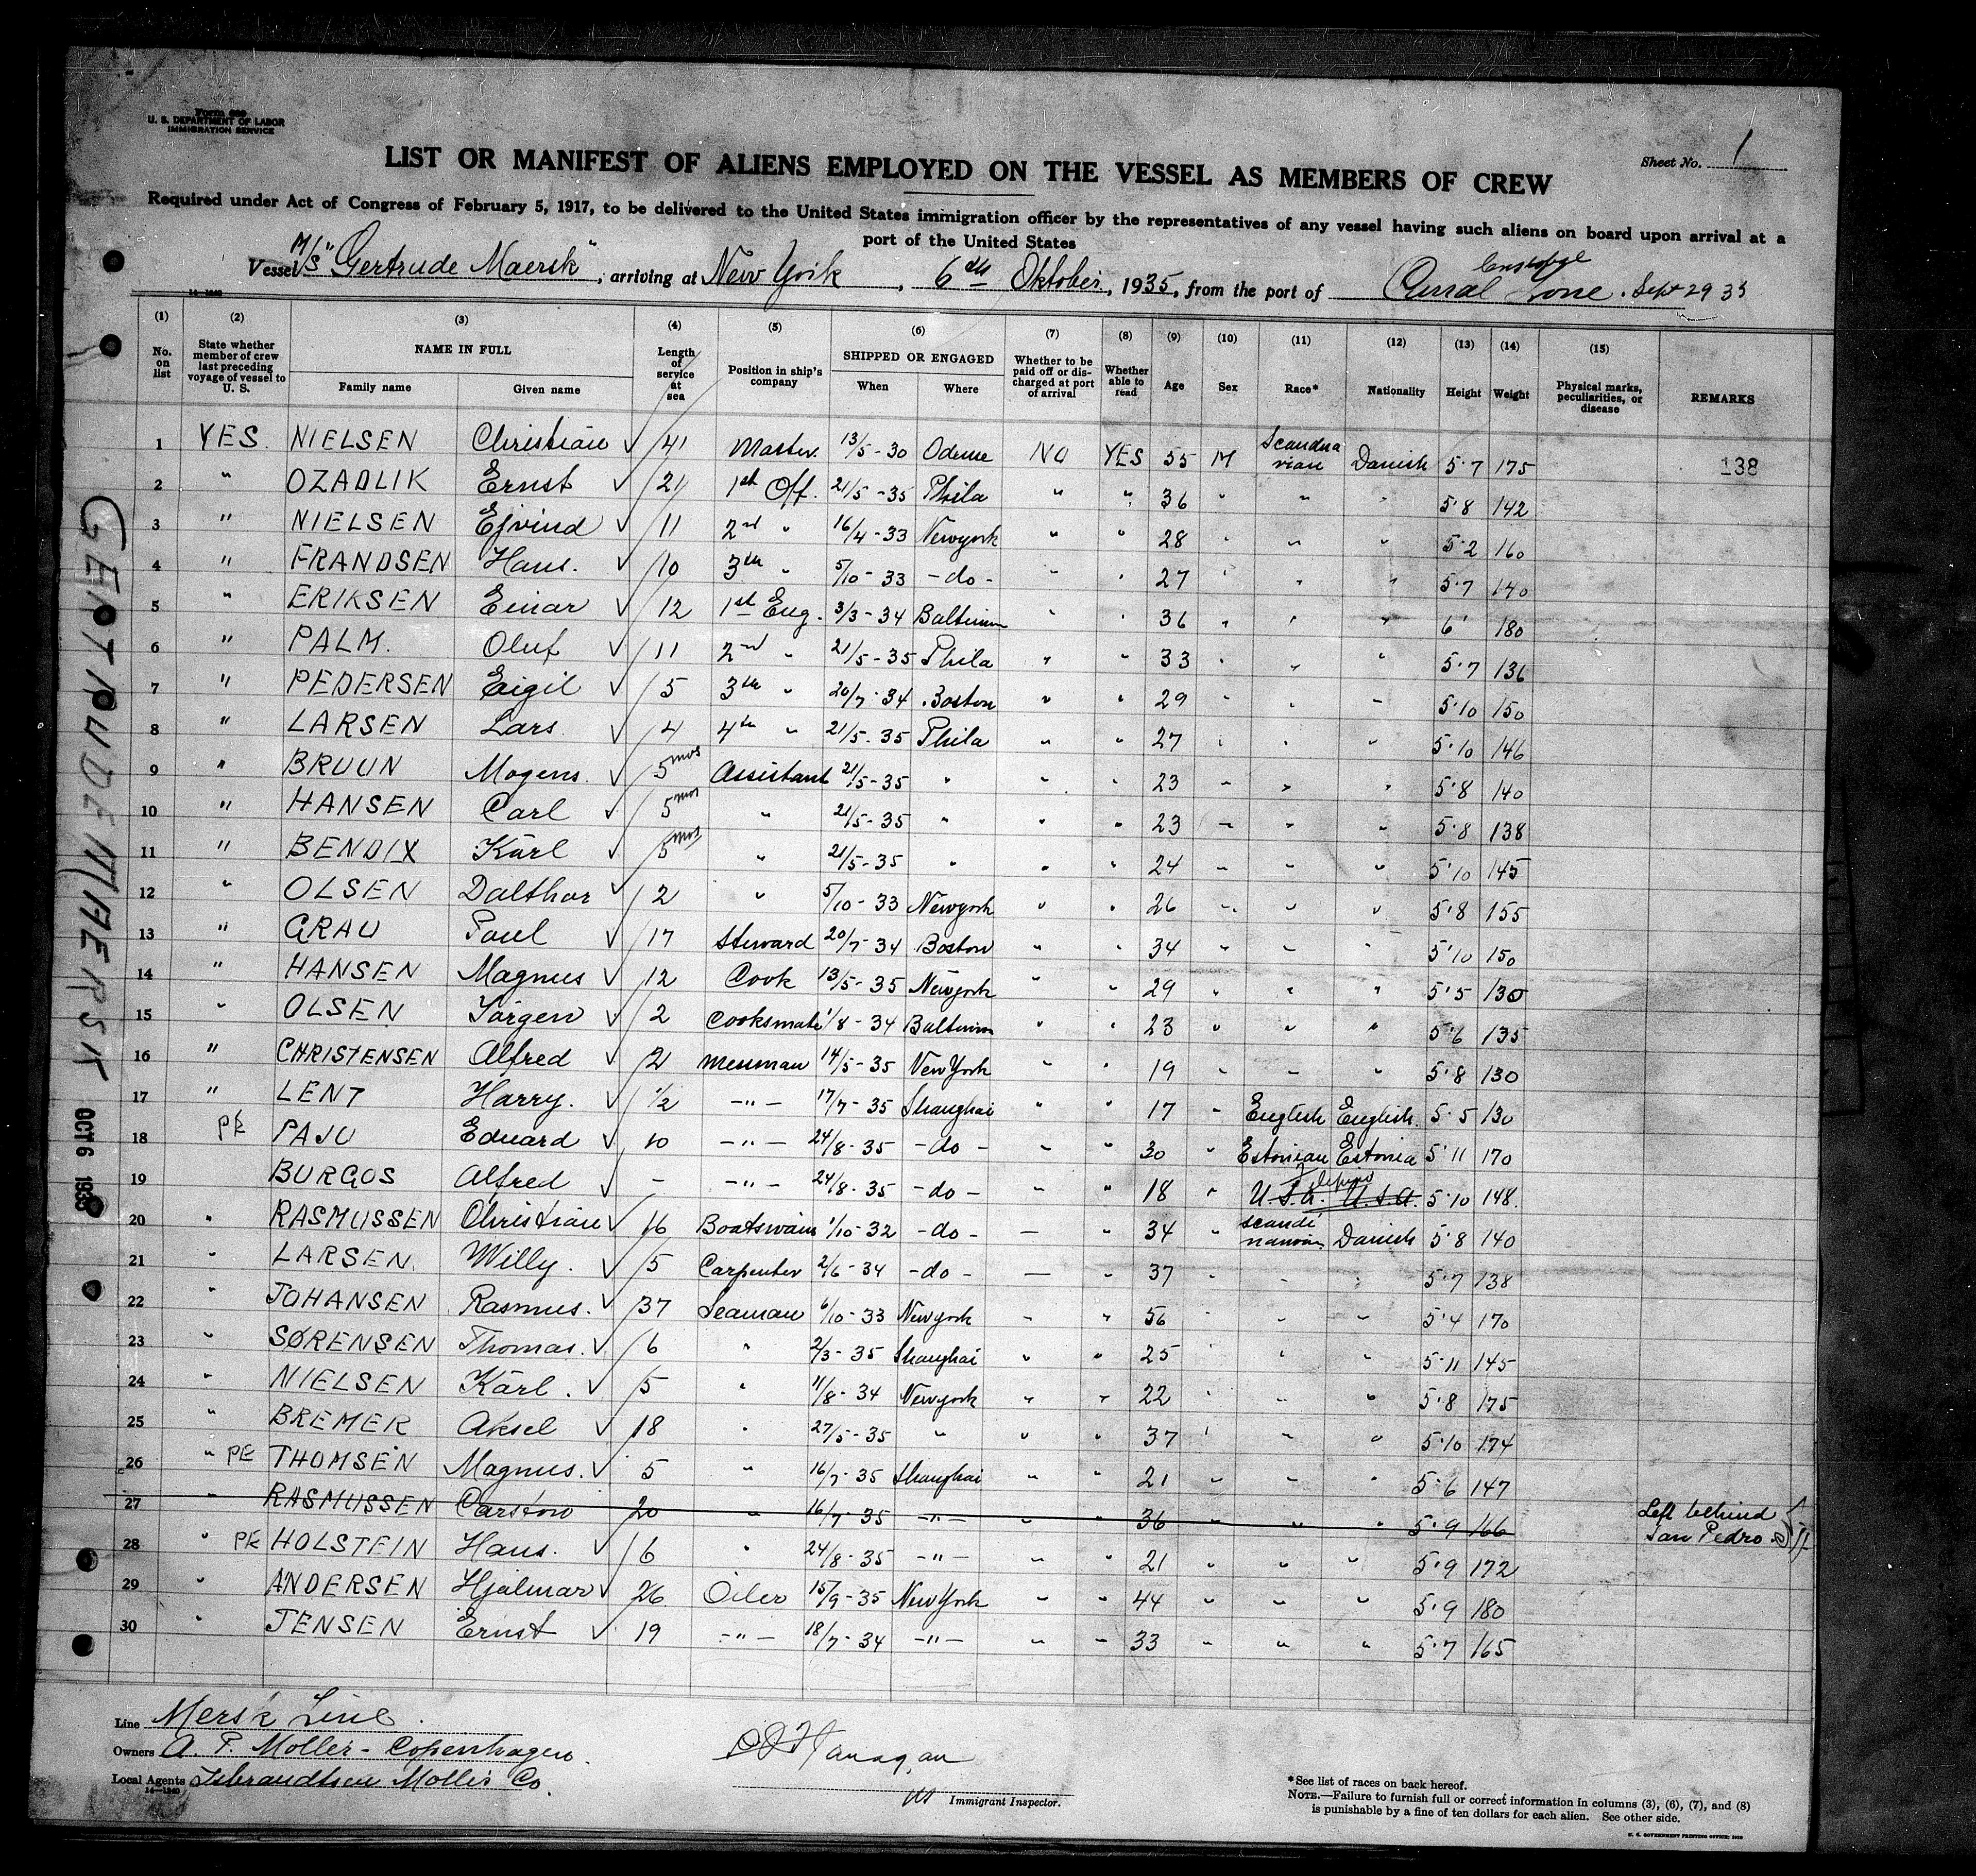 Form 689
U. S. DEPARTMENT OF LABOR
IMMIGRATION SERVICE
Sheet No. 1
LIST OR MANIFEST OF ALIENS EMPLOYED ON THE VESSEL AS MEMBERS OF CREW
Required under Act of Congress of February 5, 1917, to be delivered to the United States immigration officer by the representatives of any vessel having such aliens on board upon arrival at a
port of the United States
Vessel M/S "Gertrude Maersk", arriving at New York, 6th Oktober, 1935, from the port of Zone. Sept 29 35
14-1240
(1) (2) (3) (4) (5) (6) (7) (8) (9) (10) (11) (12) (13) (14) (15)
No. on list State whether member of crew last preceding voyage of vessel to U. S. NAME IN FULL Family name Given name Length of service at sea Position in ship's company SHIPPED OR ENGAGED When Where Whether to be paid off or discharged at port of arrival Whether able to read Age Sex Race* Nationality Height Weight Physical marks, peculiarities, or disease REMARKS
1 YES. NIELSEN Christian √ 41 Master. 13/5-30 Odense NO YES 55 M Scandinavian Danish 5'7 175 138
2 " OZADLIK Ernst √ 21 1st Off. 21/5-35 Phila " " 36 " " " 5'8 142
3 " NIELSEN Ejvind √ 11 2nd " 16/4-33 Newyork " " 28 " " " 5'2 160
4 " FRANDSEN Hans. √ 10 3th " 5/10-33 -do- " " 27 " " " 5'7 140
5 " ERIKSEN Einar √ 12 1st Eng. 3/3-34 Baltimore " " 36 " " " 6' 180
6 " PALM. Oluf √ 11 2nd " 21/5-35 Phila " " 33 " " " 5'7 136
7 " PEDERSEN Eigil √ 5 3th " 20/7-34 Boston " " 29 " " " 5'10 150
8 " LARSEN Lars √ 4 4th " 21/5-35 Phila " " 27 " " " 5'10 146
9 " BRUUN Mogens. √ 5 mos Assistant 21/5-35 " " " 23 " " " 5'8 140
10 " HANSEN Carl √ 5 mos " 21/5-35 " " " 23 " " " 5'8 138
11 " BENDIX Karl √ 5 mos " 21/5-35 " " " 24 " " " 5'10 145
12 " OLSEN Dalthor √ 2 " 5/10-33 Newyork " " 26 " " " 5'8 155
13 " GRAU Poul √ 17 Steward 20/7-34 Boston " " 34 " " " 5'10 150
14 " HANSEN Magnus √ 12 Cook 13/5-35 Newyork " " 29 " " " 5'5 130
15 " OLSEN Jörgen √ 2 Cooksmate 1/8-34 Baltimore " " 23 " " " 5'6 135
16 " CHRISTENSEN Alfred √ 2 Messman 14/5-35 New York " " 19 " " " 5'8 130
17 " LENT Harry. √ 1/2 -"- 17/7-35 Shanghai " " 17 " English English. 5'5 130
18 PE PAJU Eduard √ 10 -"- 24/8-35 -do- " " 30 " Estonian Estonia 5'11 170
19 BURGOS Alfred √ - -"- 24/8-35 -do- " " 18 " U.S.A. U.S.A. 5'10 148.
20 " RASMUSSEN Christian √ 16 Boatswain 1/10-32 -do- — " 34 " Scandinavian Danish 5'8 140
21 " LARSEN Willy. √ 5 Carpenter 2/6-34 -do- — " 37 " " " 5'7 138
22 " JOHANSEN Rasmus. √ 37 Seaman 6/10-33 Newyork " " 56 " " " 5'4 170
23 " SØRENSEN Thomas. √ 6 " 2/3-35 Shanghai " " 25 " " " 5'11 145
24 " NIELSEN Karl. √ 5 " 11/8-34 Newyork " " 22 " " " 5'8 175
25 " BREMER Aksel √ 18 " 27/5-35 " " " 37 " " " 5'10 174
26 " PE THOMSEN Magnus. √ 5 " 16/7-35 Shanghai " " 21 " " " 5'6 147
27 " RASMUSSEN Carsten 20 " 16/7-35 -"- " " 36 " " " 5'9 166 Left behind San Pedro
28 " PE HOLSTEIN Hans. √ 6 " 24/8-35 -"- " " 21 " " " 5'9 172
29 " ANDERSEN Hjalmar √ 26 Oiler 15/9-35 New York " " 44 " " " 5'9 180
30 " JENSEN Ernst √ 19 -"- 18/7-34 -"- " " 33 " " " 5'7 165
GERTRUDE MAERSK
OCT 6 1935
Line Mersk Line.
Owners A. P. Moller - Copenhagen.
Local Agents Isbrandtsen Moller Co
14-1240
Immigrant Inspector.
*See list of races on back hereof.
NOTE.—Failure to furnish full or correct information in columns (3), (6), (7), and (8)
is punishable by a fine of ten dollars for each alien. See other side.
U. S. GOVERNMENT PRINTING OFFICE